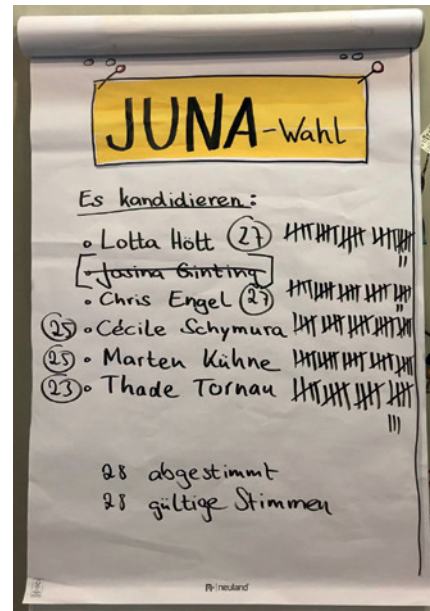 JUNA-Wahl
Es kandidieren:
• Lotta Hött (27)
• Jasina Ginting
• Chris Engel (27)
(25) • Cécile Schymura
(25) • Marten Kühne
(23) • Thade Tornau
28 abgestimmt
28 gültige Stimmen
neuland